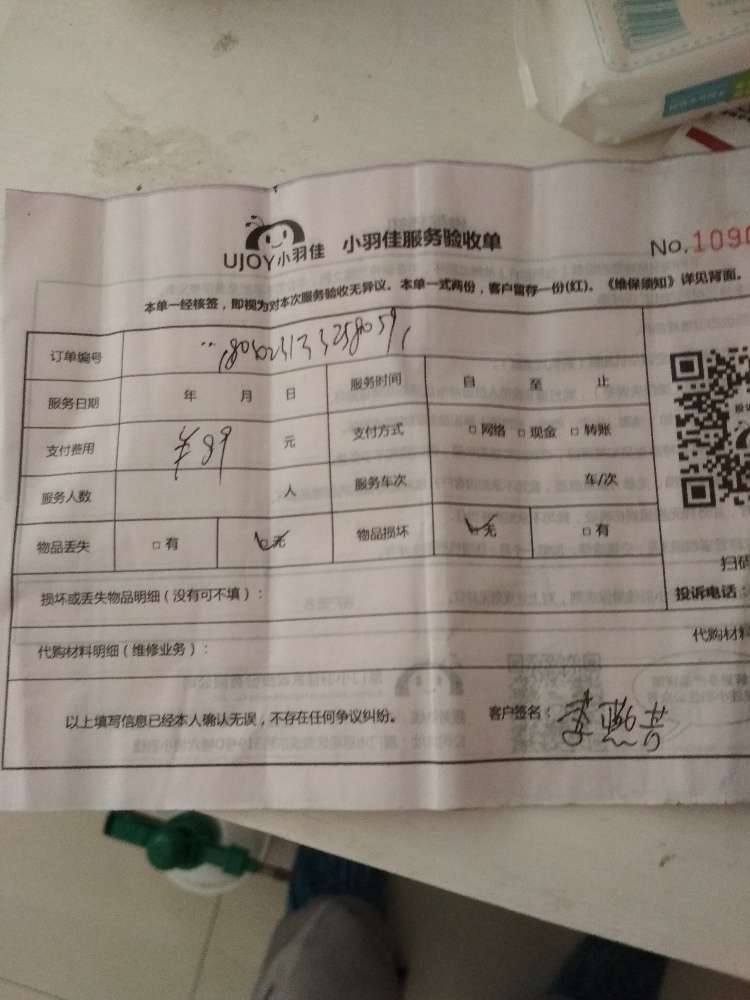 UJOY小羽佳 小羽佳服务验收单 No.1090
本单一经核签，即视为对本次服务验收无异议。本单一式两份，客户留存一份(红)。《维保须知》详见背面。
订单编号
服务日期 年 月 日 服务时间 自 至 止
支付费用 ¥89 元 支付方式 □网络 □现金 □转账
服务人数 人 服务车次 车/次
物品丢失 □有 无 物品损坏 无 □有
扫码
损坏或丢失物品明细（没有可不填）： 投诉电话：
代购材料明细（维修业务）： 代购材料
以上填写信息已经本人确认无误，不存在任何争议纠纷。 客户签名：